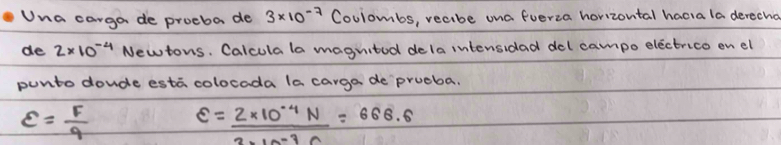 • Una carga de prueba de 3×10⁻⁷ Coulombs, recibe una fuerza horizontal hacia la derecha
de 2×10⁻⁴ Newtons. Calcula la magnitud de la intensidad del campo eléctrico en el
punto donde está colocada la carga de prueba.
ε = F/q ε = 2×10⁻⁴ N / 3×10⁻⁷ C = 666.6